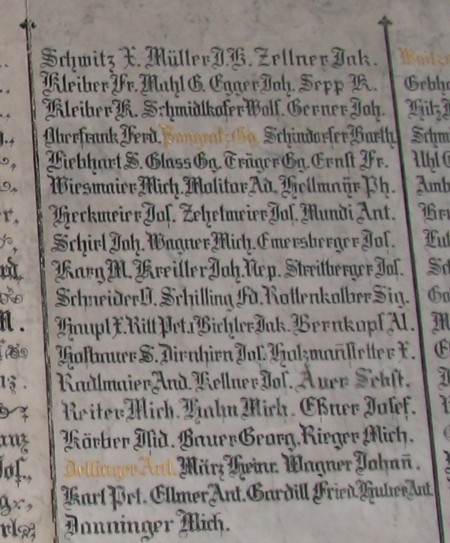 Schwitz X. Müller J.K. Zellner Jak.
Kleiber Fr. Mahl G. Egger Joh. Sepp K.
Kleiber K. Schmidlkofer Wolf. Gerner Joh.
Oberfrank Ferd. Pangratz Gg. Schindorfer Barth.
Liebhart S. Glass Gg. Träger Gg. Ernst Fr.
Wiesmaier Mich. Molitor Ad. Hellmaÿr Ph.
Heckmeier Jos. Zehetmeier Jos. Mundi Ant.
Schirl Joh. Wagner Mich. Emersberger Jos.
Karg M. Kreiller Joh. Nep. Streitberger Jos.
Schneider Schilling Fd. Rottenkolber Sig.
Haupl X. Ritt Pet. Bichler Jak. Bernkopf Al.
Hofbauer S. Dirnhirn Jos. Holzmañstetter X.
Radlmaier And. Kellner Jos. Auer Sebst.
Reiter Mich. Hahn Mich. Eßner Josef.
Körber Isid. Bauer Georg. Rieger Mich.
Dollinger Ant. März Heinr. Wagner Johañ.
Karl Pet. Ellmer Ant. Gardill Fried. Huber Ant.
Danninger Mich.